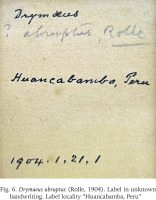 Drymaeus
? abruptus, Rolle
Huancabamba, Peru
1904.1.21.1
Fig. 6. Drymaeus abruptus (Rolle, 1904). Label in unknown
handwriting. Label locality "Huancabamba, Peru"